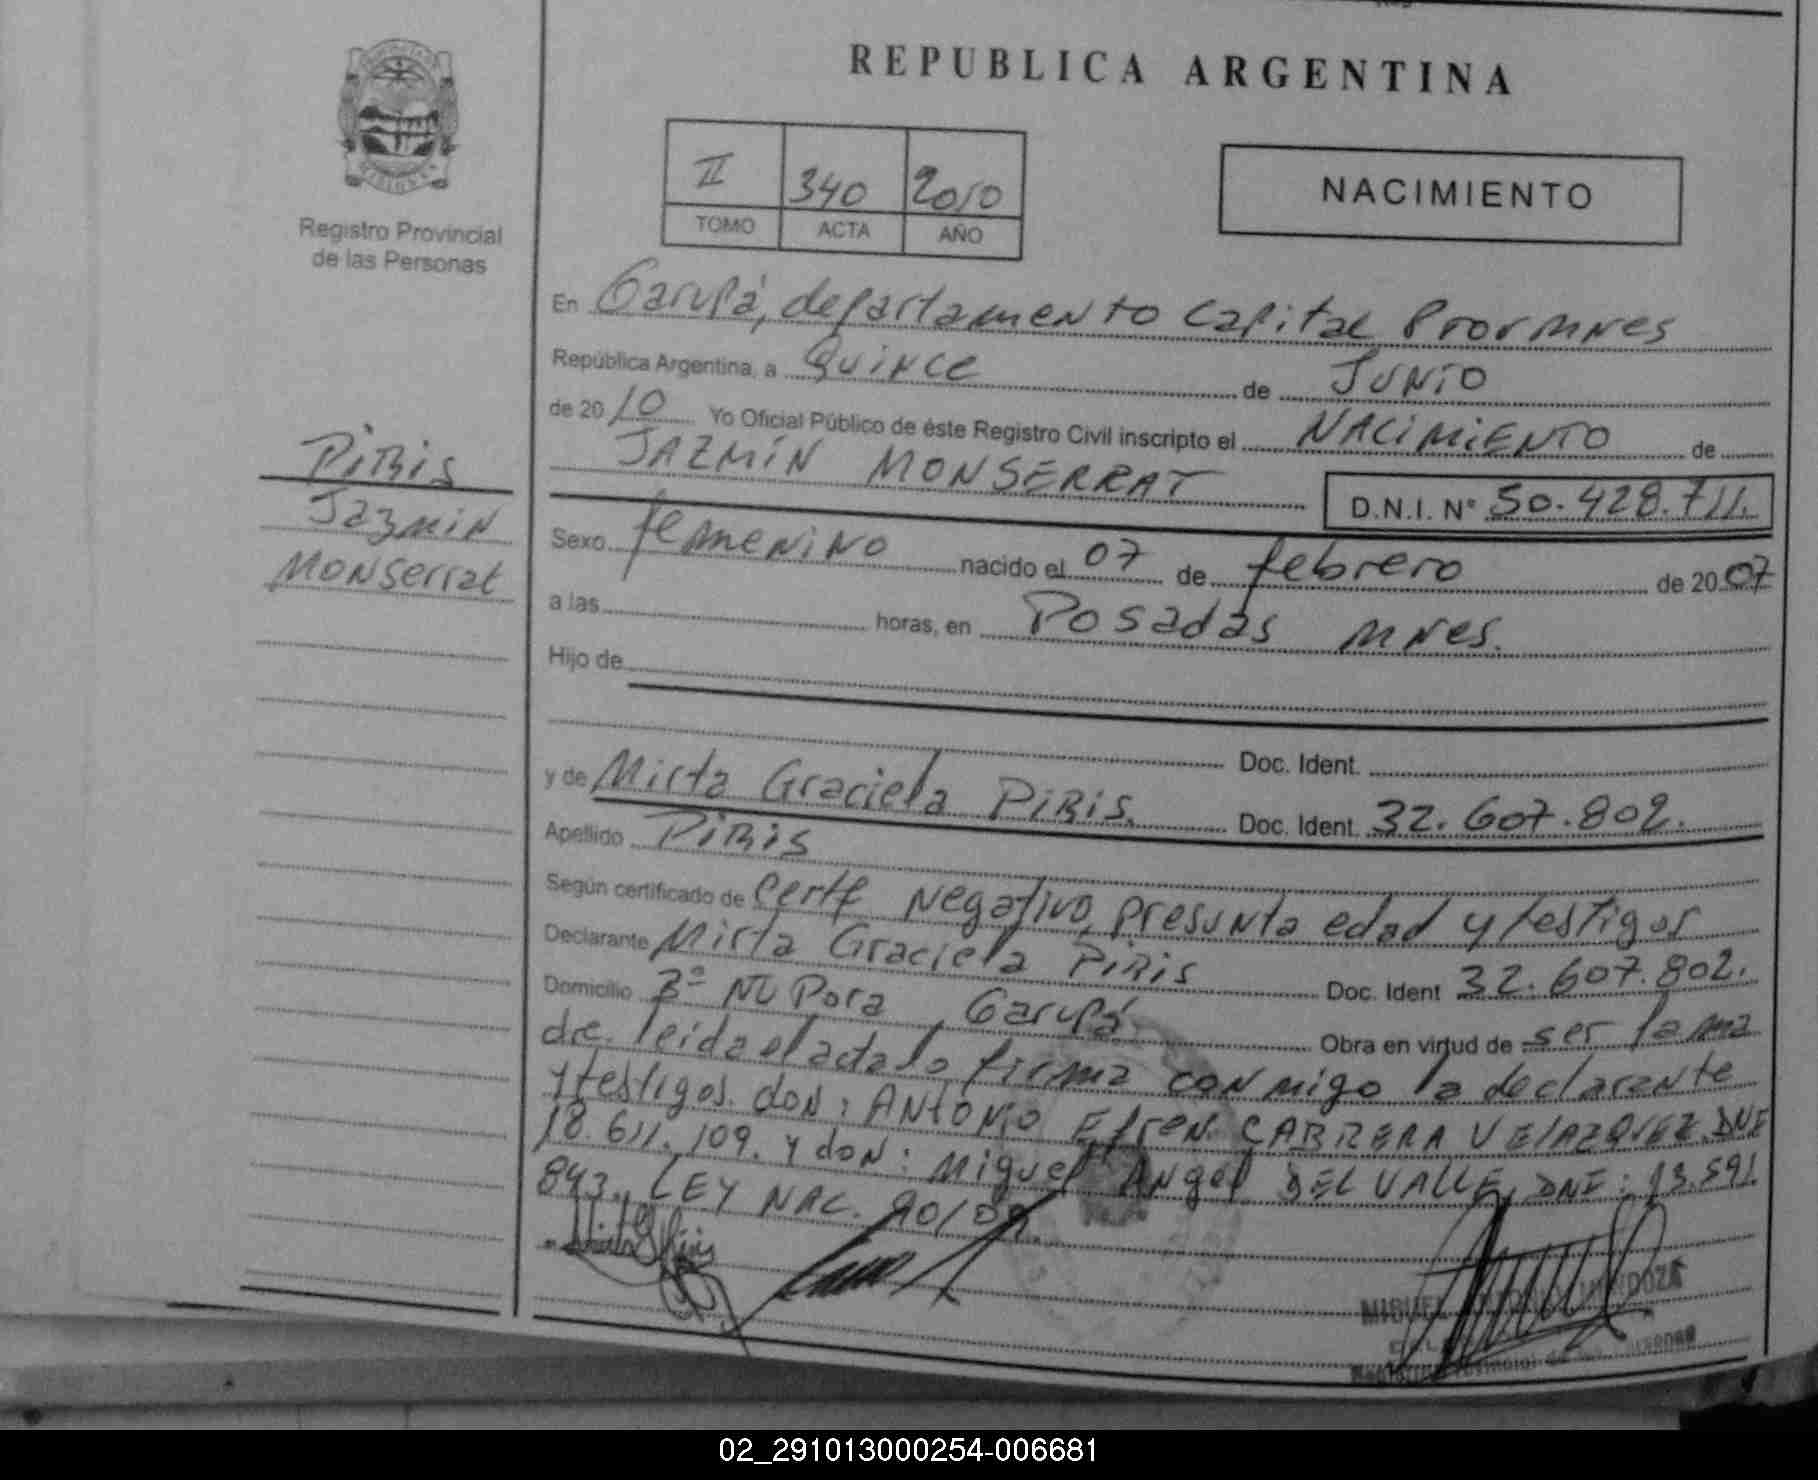 REPUBLICA ARGENTINA
MISIONES
Registro Provincial
de las Personas
II 340 2010
TOMO ACTA AÑO
NACIMIENTO
PIRIS
Jazmin
Monserrat
En Garupá, departamento Capital Prov Mnes
República Argentina, a Quince de JUNIO
de 2010 Yo Oficial Público de éste Registro Civil inscripto el NACIMIENTO de
JAZMÍN MONSERRAT D.N.I. N° 50.428.711.
Sexo femenino nacido el 07 de febrero de 2007
a las horas, en Posadas Mnes.
Hijo de
Doc. Ident.
y de Mirta Graciela PIRIS. Doc. Ident. 32.607.802.
Apellido PIRIS
Según certificado de Certf Negativo, presunta edad y testigos
Declarante Mirta Graciela PIRIS Doc. Ident 32.607.802.
Domicilio Bº Ñu Pora, Garupá. Obra en virtud de ser la ma
dre. leida el acta la firma conmigo la declarante
y testigos. don: ANTONIO Efren CABRERA VELAZQUEZ. DNI
18.611.109. y don: Miguel Angel DEL VALLE, DNI: 13.591.
843., LEY NAC. 90/09.
MIGUEL MENDOZA
Provincial de las Personas
02_291013000254-006681